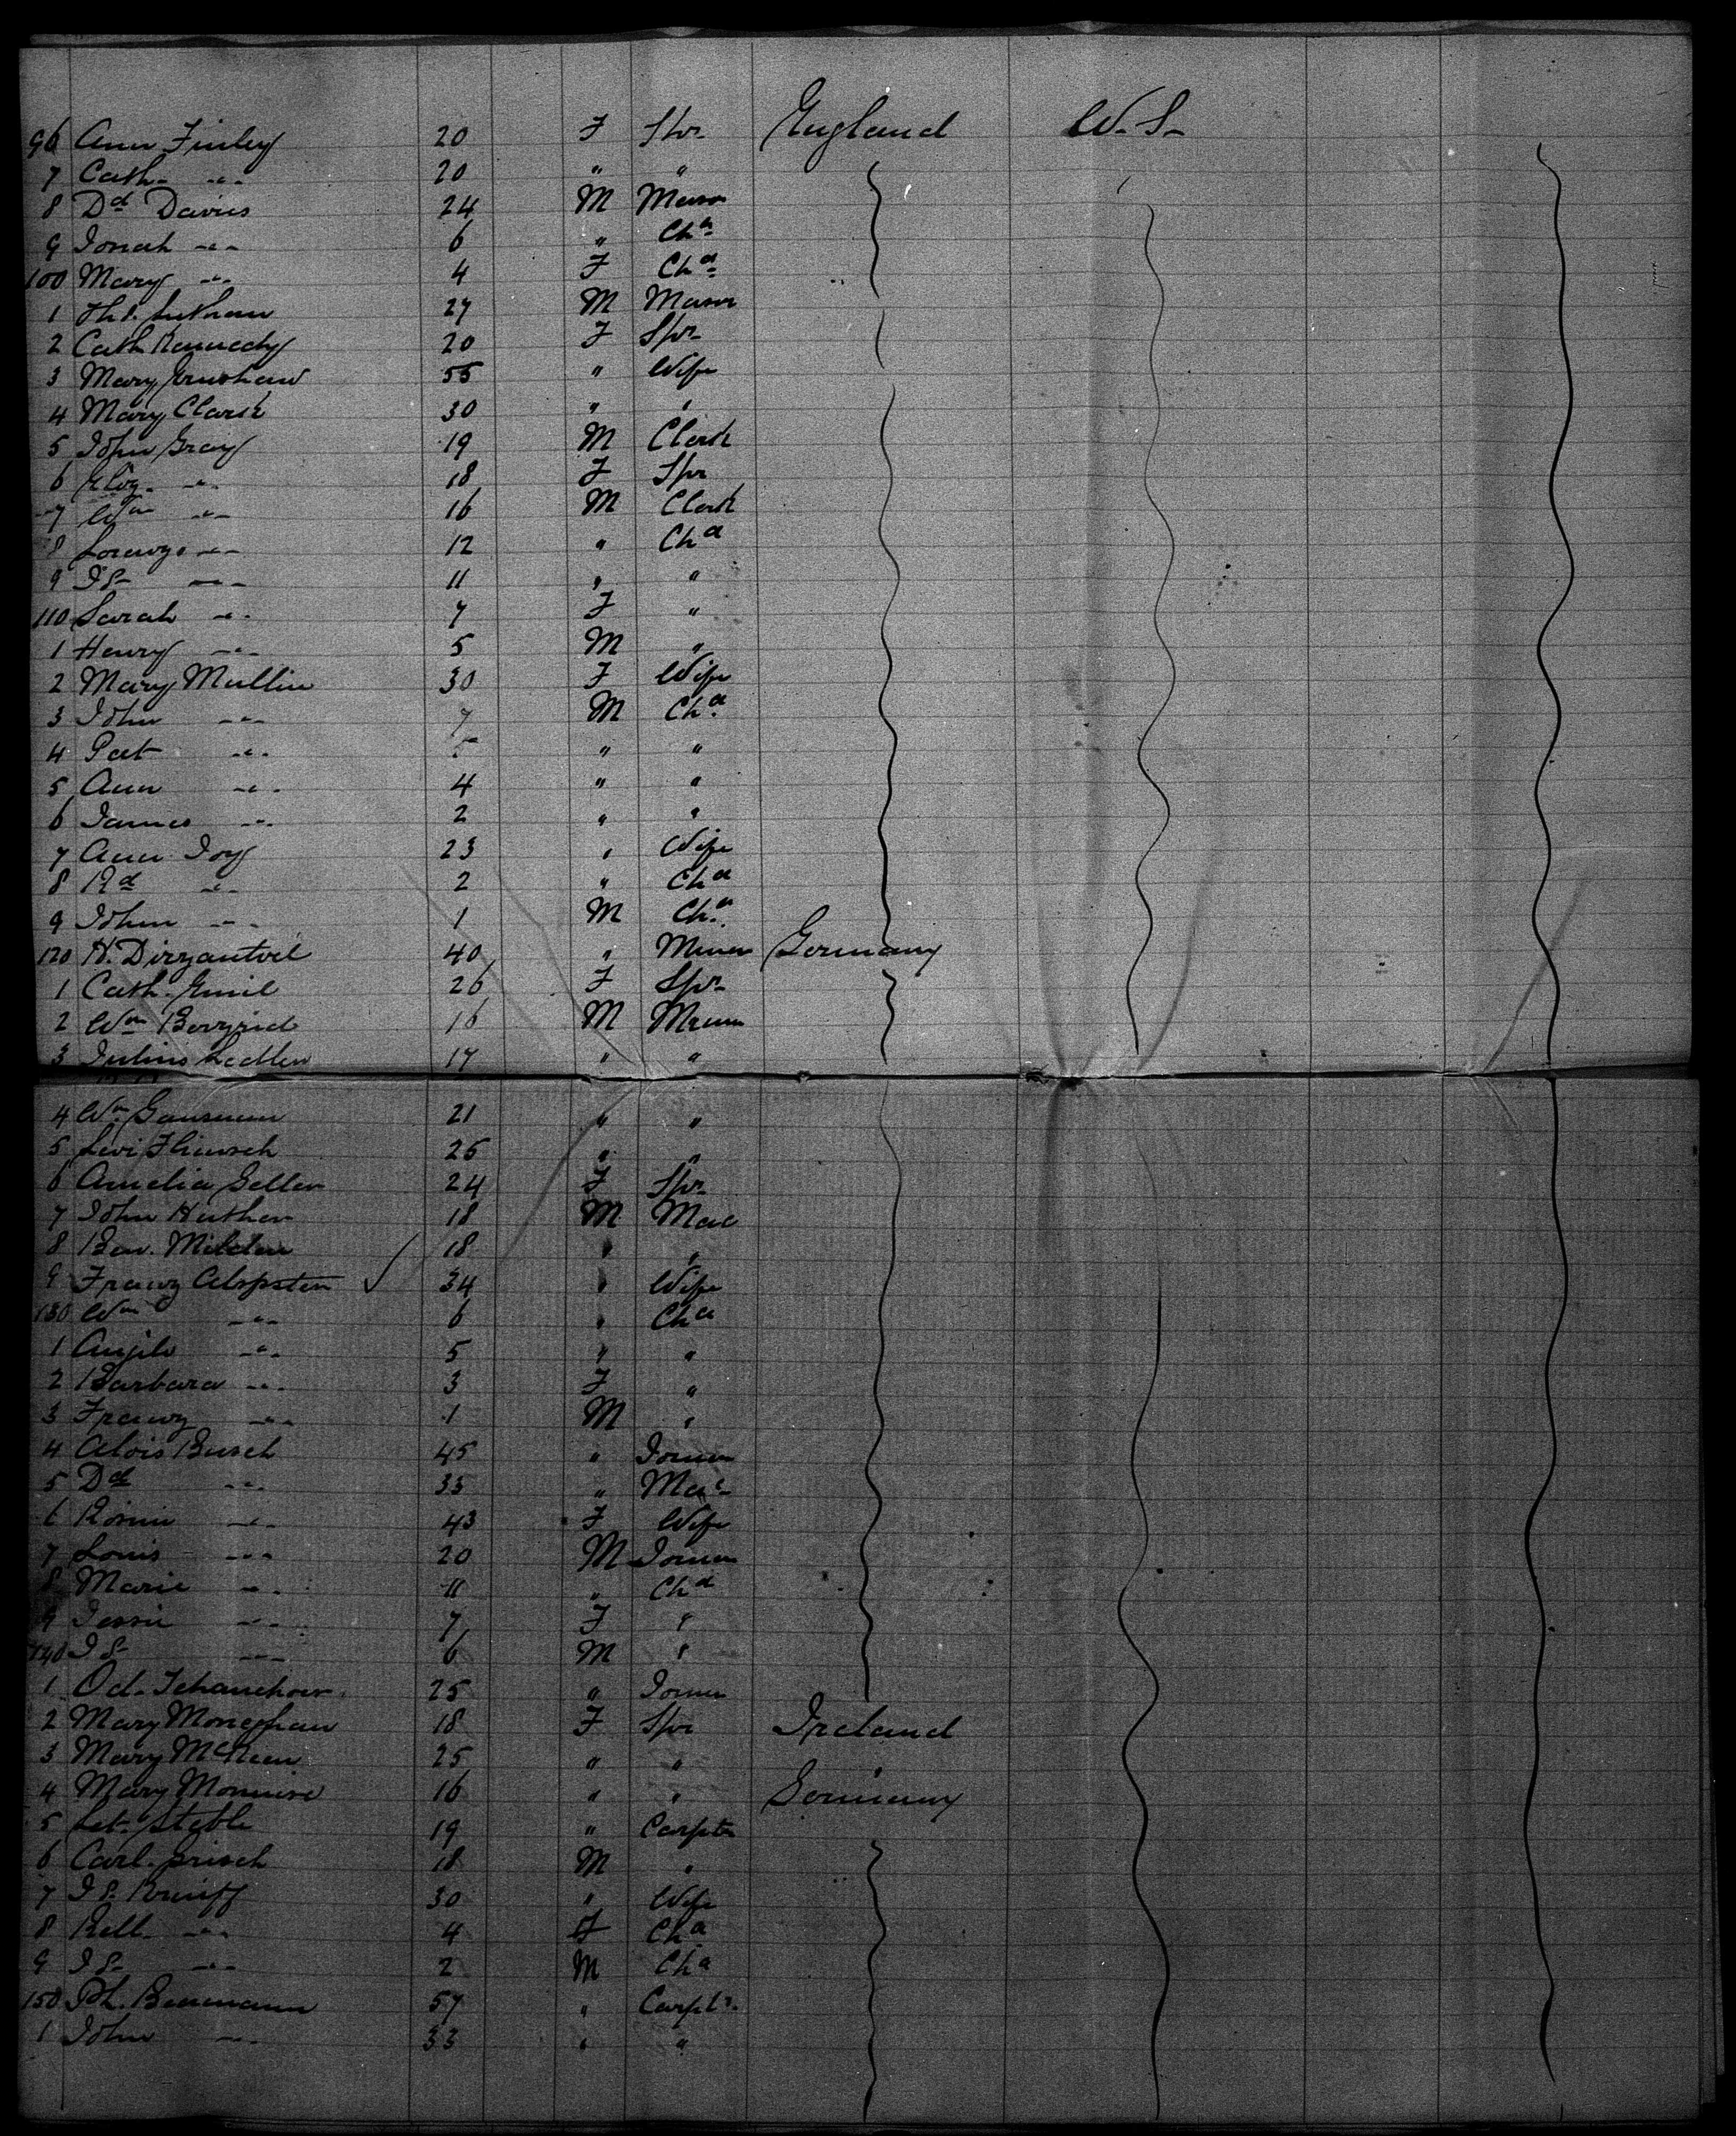 96 Ann Finley 20 F Spr England U.S.
7 Cath. " 20 " "
8 Dd Davies 24 M Mason
9 Josiah " 6 " Chd
100 Mary " 4 F Chd
1 Ths. 27 M Mason
2 Cath Kennedy 20 F Spr
3 Mary 55 " Wife
4 Mary Clark 30 " "
5 John Gray 19 M Clerk
6 Eliz. " 18 F Spr
7 Wm " 16 M Clerk
8 " 12 " Chd
9 Js " 11 " "
110 Sarah " 7 F "
1 Henry " 5 M "
2 Mary Mullin 30 F Wife
3 John " 7 M Chd
4 Pat " " "
5 Ann " 4 " "
6 James " 2 " "
7 Ann Joy 23 " Wife
8 Rd " 2 " Chd
9 John " 1 M Chd
120 H. 40 " Miner Germany
1 Cath. 26 F Spr
2 Wm 16 M
3 Julius 17 " "
4 Wm 21 " "
5 Levi 25 " "
6 Amelia Geller 24 F Spr
7 John Huther 18 M Mac
8 Ben. 18 " "
9 Franz 34 " Wife
130 Wm " 6 " Chd
1 " 5 " "
2 Barbara " 3 F "
3 Franz " 1 M "
4 Alois Busch 45 " Joiner
5 Dd " 33 " Mac
6 Rosine " 43 F Wife
7 Louis " 20 M Joiner
8 Marie " 11 " Chd
9 Jessie " 7 F "
140 Js " 6 M "
1 Od. 25 " Joiner
2 Mary Moneghan 18 F Spr Ireland
3 Mary 25 " " "
4 Mary 16 " " Germany
5 19 " Carptr
6 Carl 18 M "
7 Js 30 " Wife
8 Bell " 4 F Chd
9 Js " 2 M Chd
150 Ph. 57 " Carptr
1 John " 33 " "